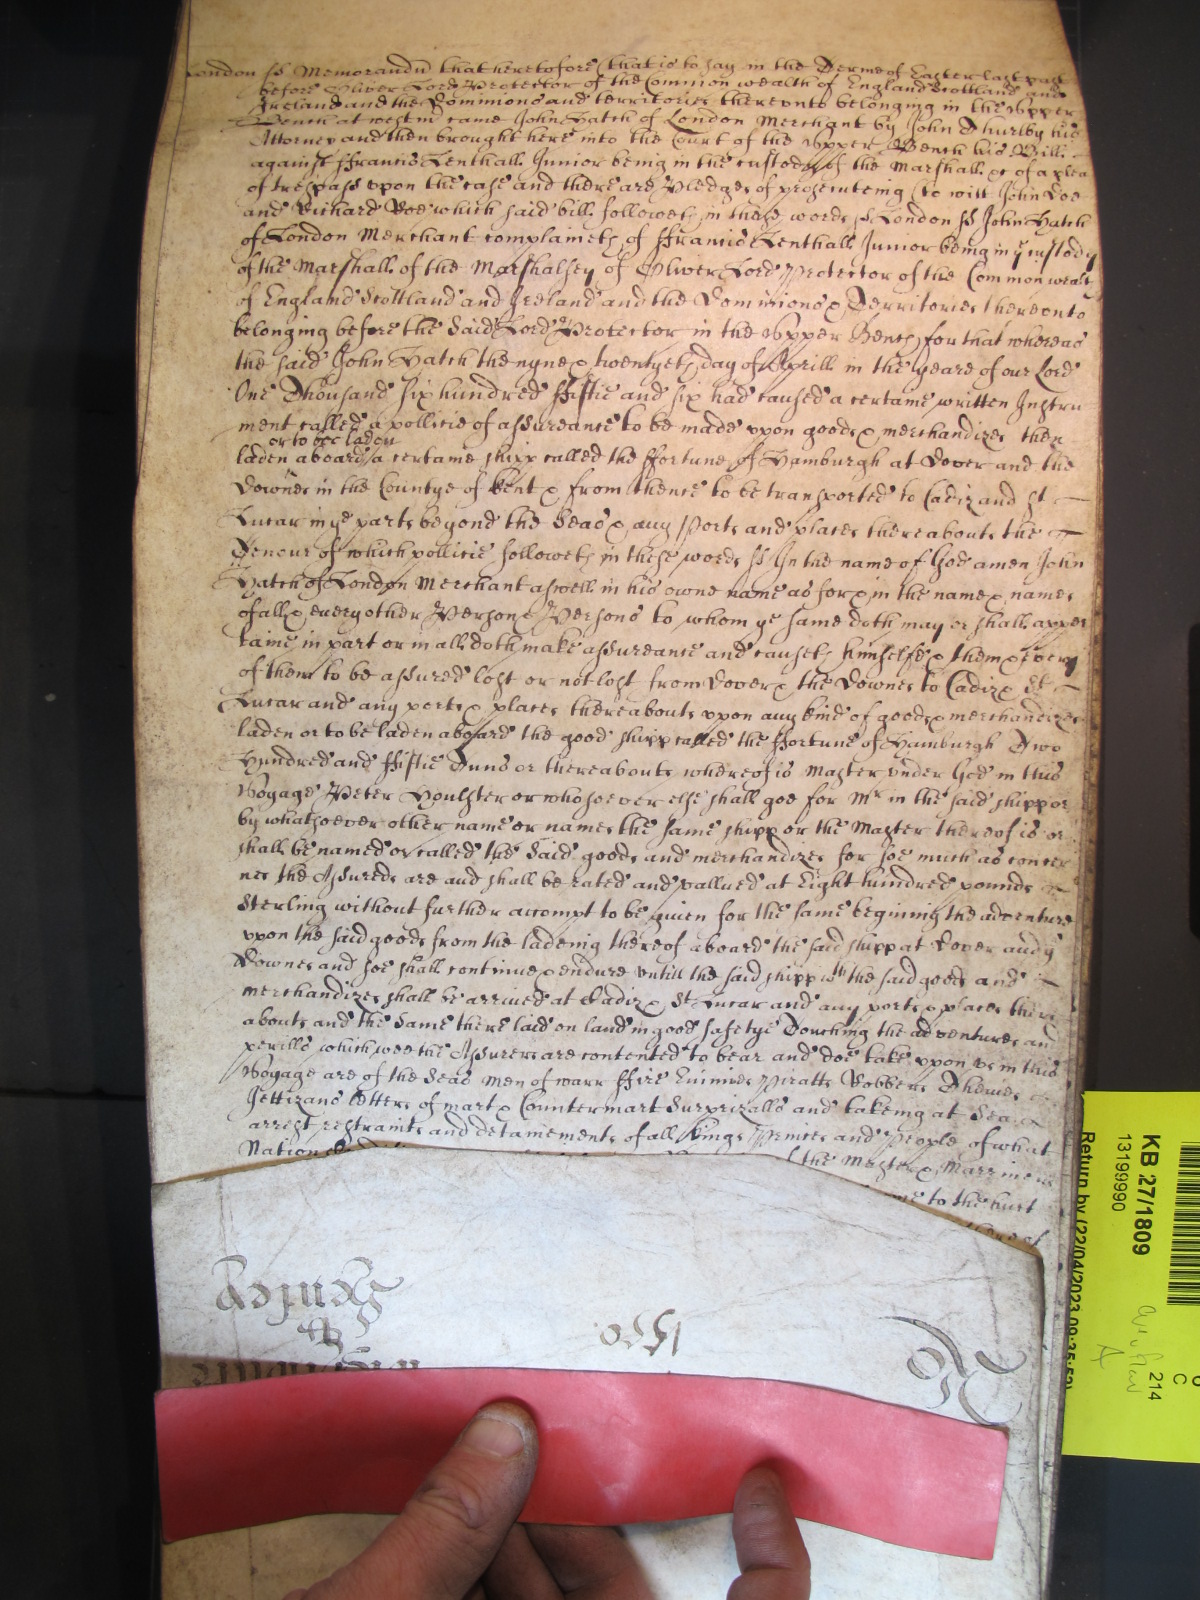 London ss Memorandu that heretofore (that is to say in the Terme of Easter last past
before Oliver Lord Protector of the Common wealth of England Scotland and
Ireland and the Dominions and territories thereunto belonging in the Upper
Bench at westm came John Hatch of London Merchant by John Thurlby his
Attorney and then brought here into the Court of the Upper Bench his Bill
against ffrancis Lenthall Junior being in the custody of the Marshall &c of a plea
of trespass upon the case and there are Pledges of prosecuteing (to witt John Doe
and Richard Roe which said bill followeth in these words ss London ss John Hatch
of London Merchant complaineth of ffrancis Lenthall Junior being in ye custody
of the Marshall of the Marshalsey of Oliver Lord Protector of the Common wealt
of England Scotland and Ireland and the Dominions & Territories thereonto
belonging before the said Lord Protector in the Upper Bench for that whereas
the said John Hatch the nyne & twentyeth day of Aprill in the yeare of our Lord
One Thousand six hundred fiftie and six had caused a certaine written Instru
ment called a pollicie of assureance to be made upon goods & merchandizes then
or to bee laden
laden aboard a certaine shipp called the ffortune of Hamburgh at Dover and the
Downes in the Countye of Kent & from thence to be transported to Cadiz and St
Lucar in ye parts beyond the Seas & any Ports and places thereabouts the
Tenour of which pollicie followeth in these words ss In the name of God amen John
Hatch of London Merchant aswell in his owne name as for & in the name & names
of all & every other Person & Persons to whom ye same doth may or shall apper
taine in part or in all doth make assureance and causeth himselfe & them & every
of them to be assured lost or not lost from Dover & the Downes to Cadiz & St
Lucar and any ports & places thereabouts upon any kind of goods & merchandizes
laden or to be laden aboard the good shipp called the ffortune of Hamburgh Two
Hundred and ffiftie Tuns or thereabouts whereof is Master under God in this
Voyage Peter Houlster or whosoever else shall goe for Mr in the said shipp or
by whatsoever other name or names the same shipp or the Master thereof is or
shall be named or called the said goods and merchandizes for soe much as concer
nes the Assureds are and shall be rated and vallued at Eight hundred pounds
Sterling without further accompt to be given for the same beginning the adventure
upon the said goods from the ladenig thereof aboard the said shipp at Dover and ye
Downes and soe shall continue & endure untill the said shipp wth the said goods and
merchandizes shall be arrived at Cadiz & St Lucar and any ports & places there
abouts and the same there laid on land in good safetye Touching the adventures an
perills which wee the Assurers are contented to bear and doe take upon us in this
Voyage are of the Seas men of warr ffire Enimies Piratts Robbers Theives
Jettizons letters of mart & Countermart Surprizalls and takeing at Sea
arrest restraints and detainements of all Kings Princes and People of what
Nation
the Master & Marriners
to the hurt
thereof
Surrey
1550
KB 27/1809
13199990
Return by (22/04/2023 09:35:52)
C
214
A